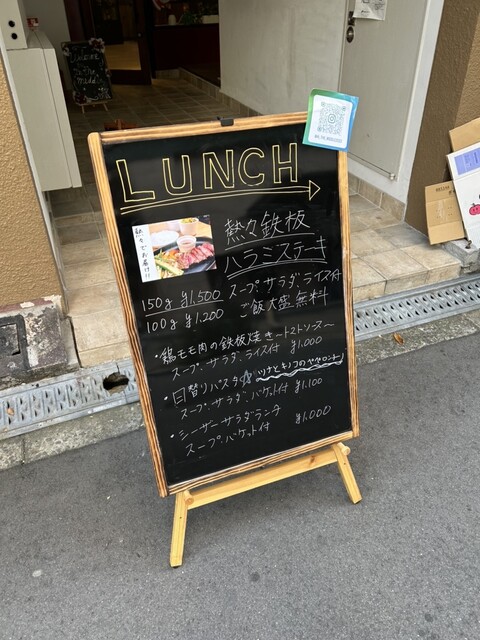 LUNCH
熱々鉄板
ハラミステーキ
熱々でお届け!!
150g ¥1,500 スープ、サラダ、ライス付
100g ¥1,200 ご飯大盛無料
・鶏モモ肉の鉄板焼き〜トマトソース〜
スープ、サラダ、ライス付 ¥1,000
・日替りパスタ
スープ、サラダ、バケット付 ¥1,100
・シーザーサラダランチ
スープ、バケット付 ¥1,000